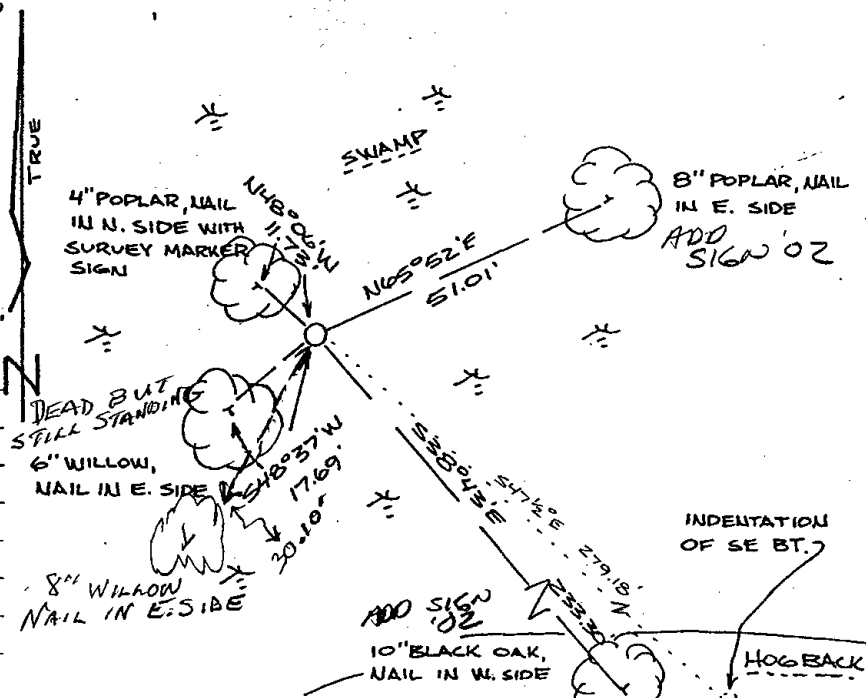 TRUE
N
SWAMP
4" POPLAR, NAIL
IN N. SIDE WITH
SURVEY MARKER
SIGN
N48°06'W
11.73'
8" POPLAR, NAIL
IN E. SIDE
ADD
SIGN '02
N65°52'E
51.01'
DEAD BUT
STILL STANDING
6" WILLOW,
NAIL IN E. SIDE
S48°37'W
17.69'
20.10'
8" WILLOW
NAIL IN E. SIDE
S38°43'E
233.30'
S47½°E 279.18'
INDENTATION
OF SE BT.
ADD SIGN
'02
10" BLACK OAK,
NAIL IN W. SIDE
HOGBACK